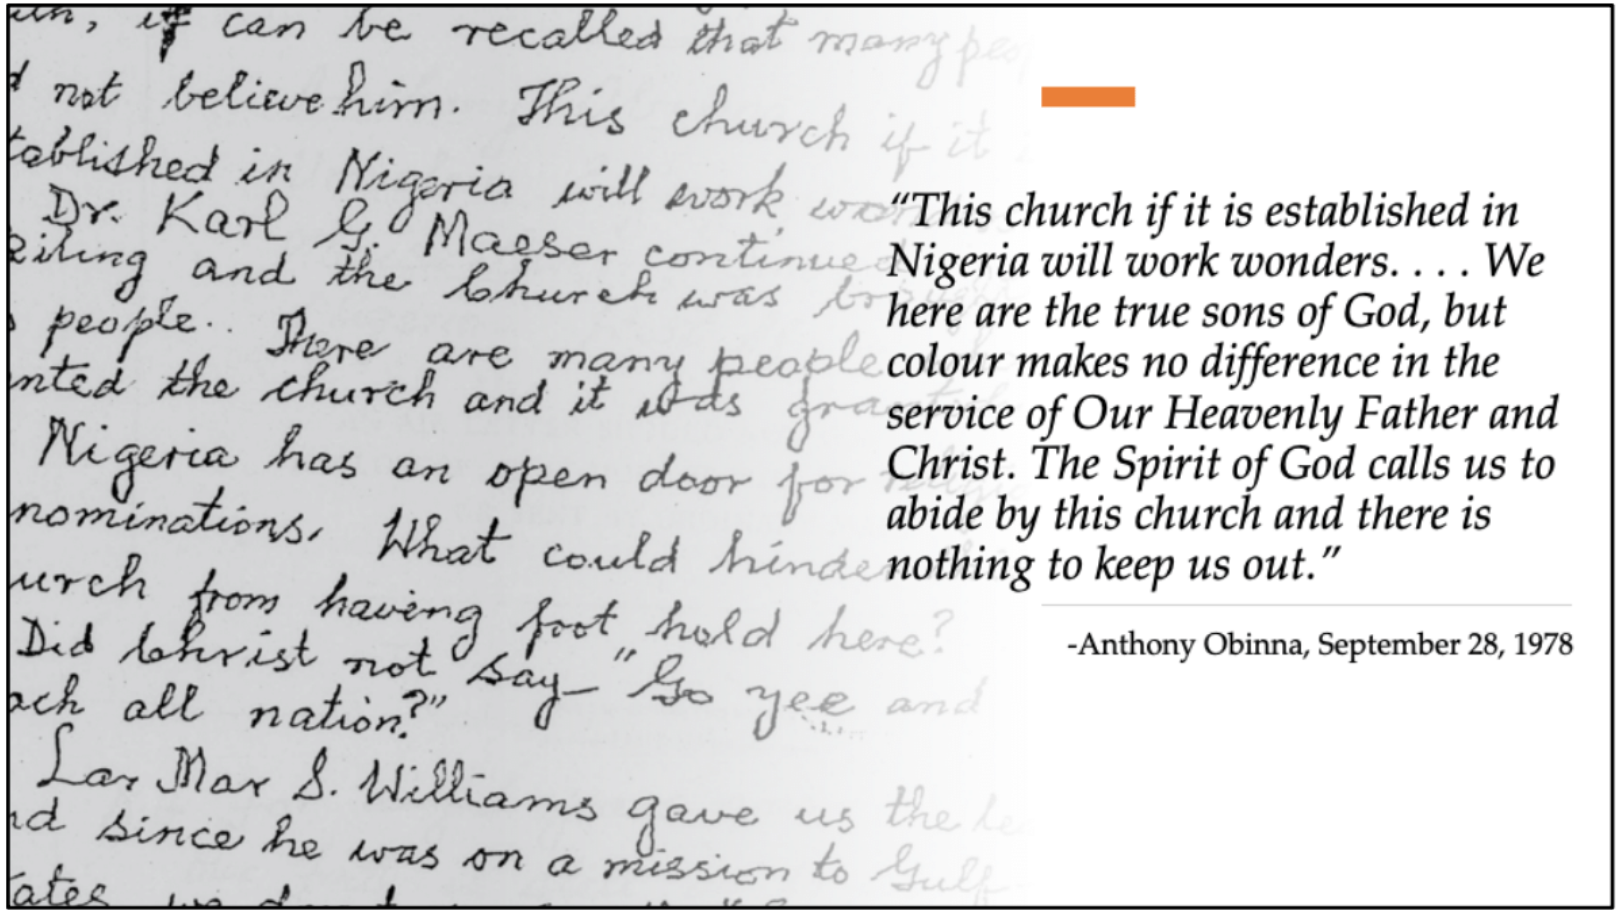 if can be recalled that many
not believe him. This church if it
tablished in Nigeria will work
Dr. Karl G. Maeser continued
and the Church was
people. There are many people
nted the church and it was
Nigeria has an open door for
nominations. What could hinder
urch from having foot hold here?
Did Christ not say "Go yee and
ach all nation?"
Lar Mar S. Williams gave us the
nd since he was on a mission to Gulf
ates
“This church if it is established in
Nigeria will work wonders. . . . We
here are the true sons of God, but
colour makes no difference in the
service of Our Heavenly Father and
Christ. The Spirit of God calls us to
abide by this church and there is
nothing to keep us out.”
-Anthony Obinna, September 28, 1978